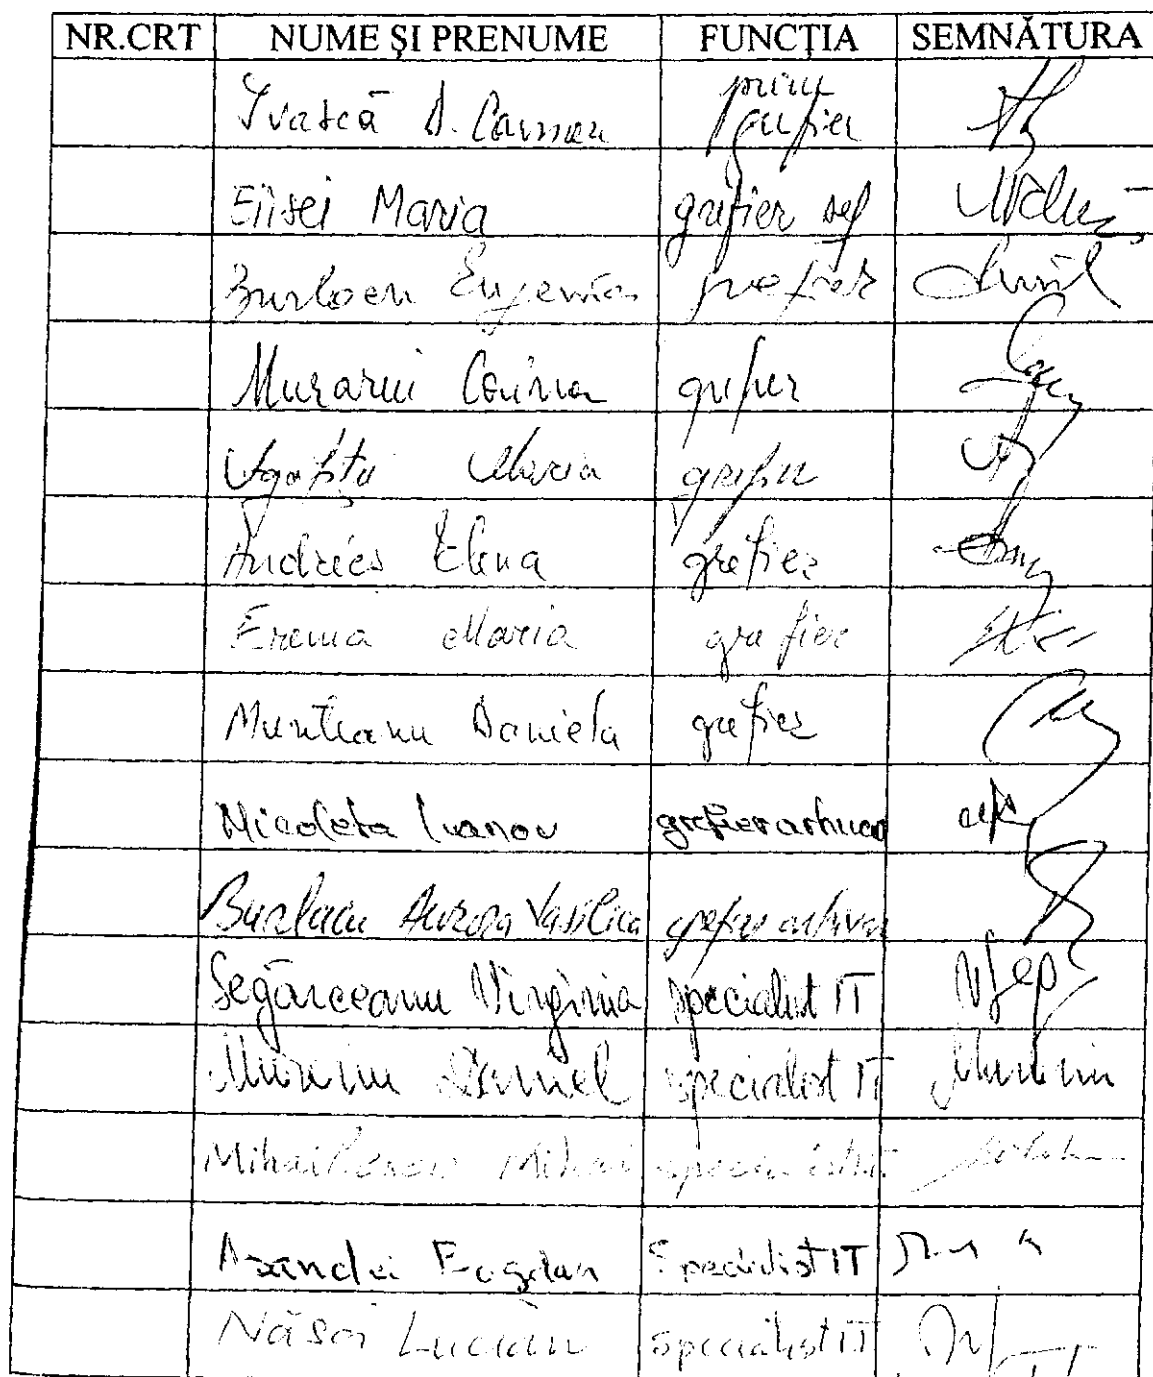 NR.CRT NUME ȘI PRENUME FUNCȚIA SEMNĂTURA
Ivașcă D. Carmen prim grefier
Elisei Maria grefier șef
Eugenia grefier
Murariu Corina grefier
Agapița Maria grefier
Andrieș Elena grefier
Eremia Maria grefier
Munteanu Daniela grefier
Nicoleta Ivanov grefier arhivar
Burlacu Aurora Vasilica grefier arhivar
Segărceanu Virginia specialist IT
Daniel specialist IT
Mihai specialist IT
Asandei Bogdan Specialist IT
Năsoi Lucian specialist IT